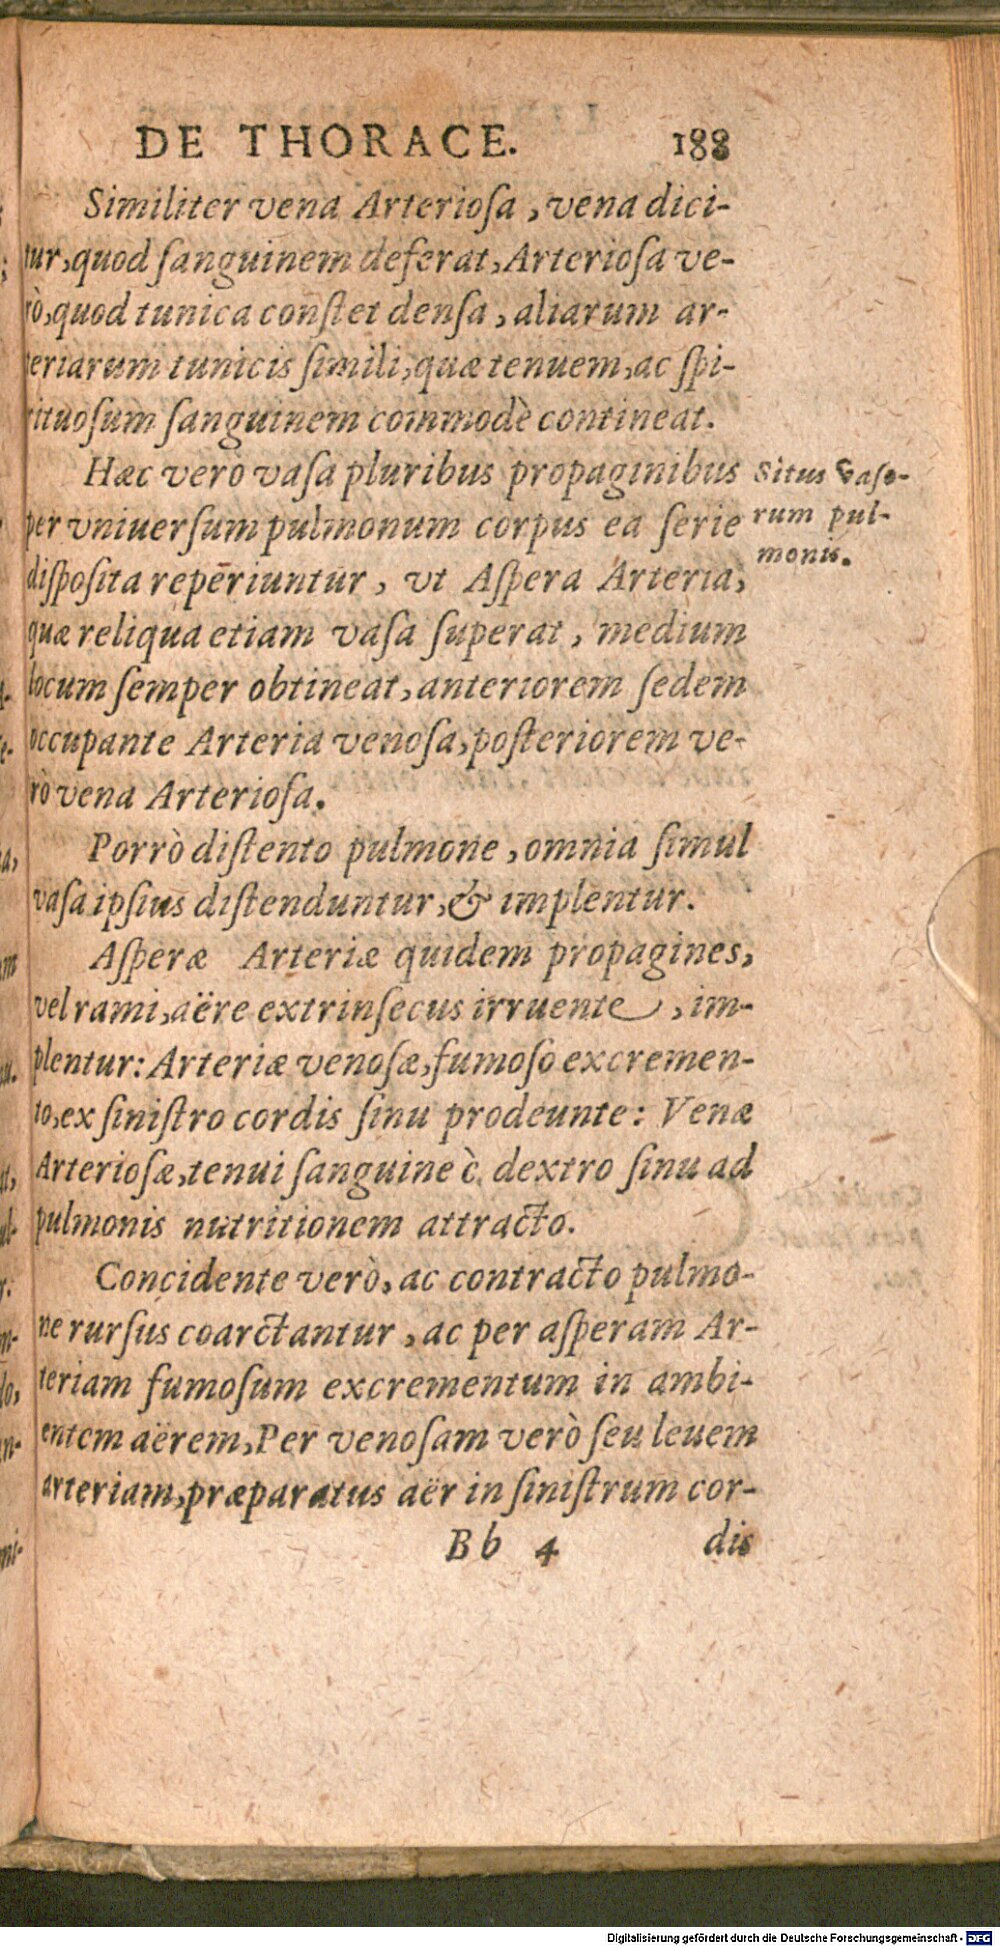 DE THORACE. 188
Similiter vena Arterioſa, vena dici-
tur, quod ſanguinem deferat, Arterioſa ve-
rò, quod tunica conſtet denſa, aliarum ar-
teriarum tunicis ſimili, quæ tenuem, ac ſpi-
rituoſum ſanguinem commodè contineat.
Hæc verò vaſa pluribus propaginibus
per vniuerſum pulmonum corpus ea ſerie
diſpoſita reperiuntur, vt Aſpera Arteria,
quæ reliqua etiam vaſa ſuperat, medium
locum ſemper obtineat, anteriorem ſedem
occupante Arteria venoſa, poſteriorem ve-
rò vena Arterioſa.
Situs vaſo-
rum pul-
monis.
Porrò diſtento pulmone, omnia ſimul
vaſa ipſius diſtenduntur, & implentur.
Aſperæ Arteriæ quidem propagines,
vel rami, aëre extrinſecus irruente, im-
plentur: Arteriæ venoſæ, fumoſo excremen-
to, ex ſiniſtro cordis ſinu prodeunte: Venæ
Arterioſæ, tenui ſanguine è dextro ſinu ad
pulmonis nutritionem attracto.
Concidente verò, ac contracto pulmo-
ne rurſus coarctantur, ac per aſperam Ar-
teriam fumoſum excrementum in ambi-
entem aërem, Per venoſam verò ſeu leuem
arteriam, præparatus aër in ſiniſtrum cor-
Bb 4 dis
Digitalisierung gefördert durch die Deutsche Forschungsgemeinschaft - DFG